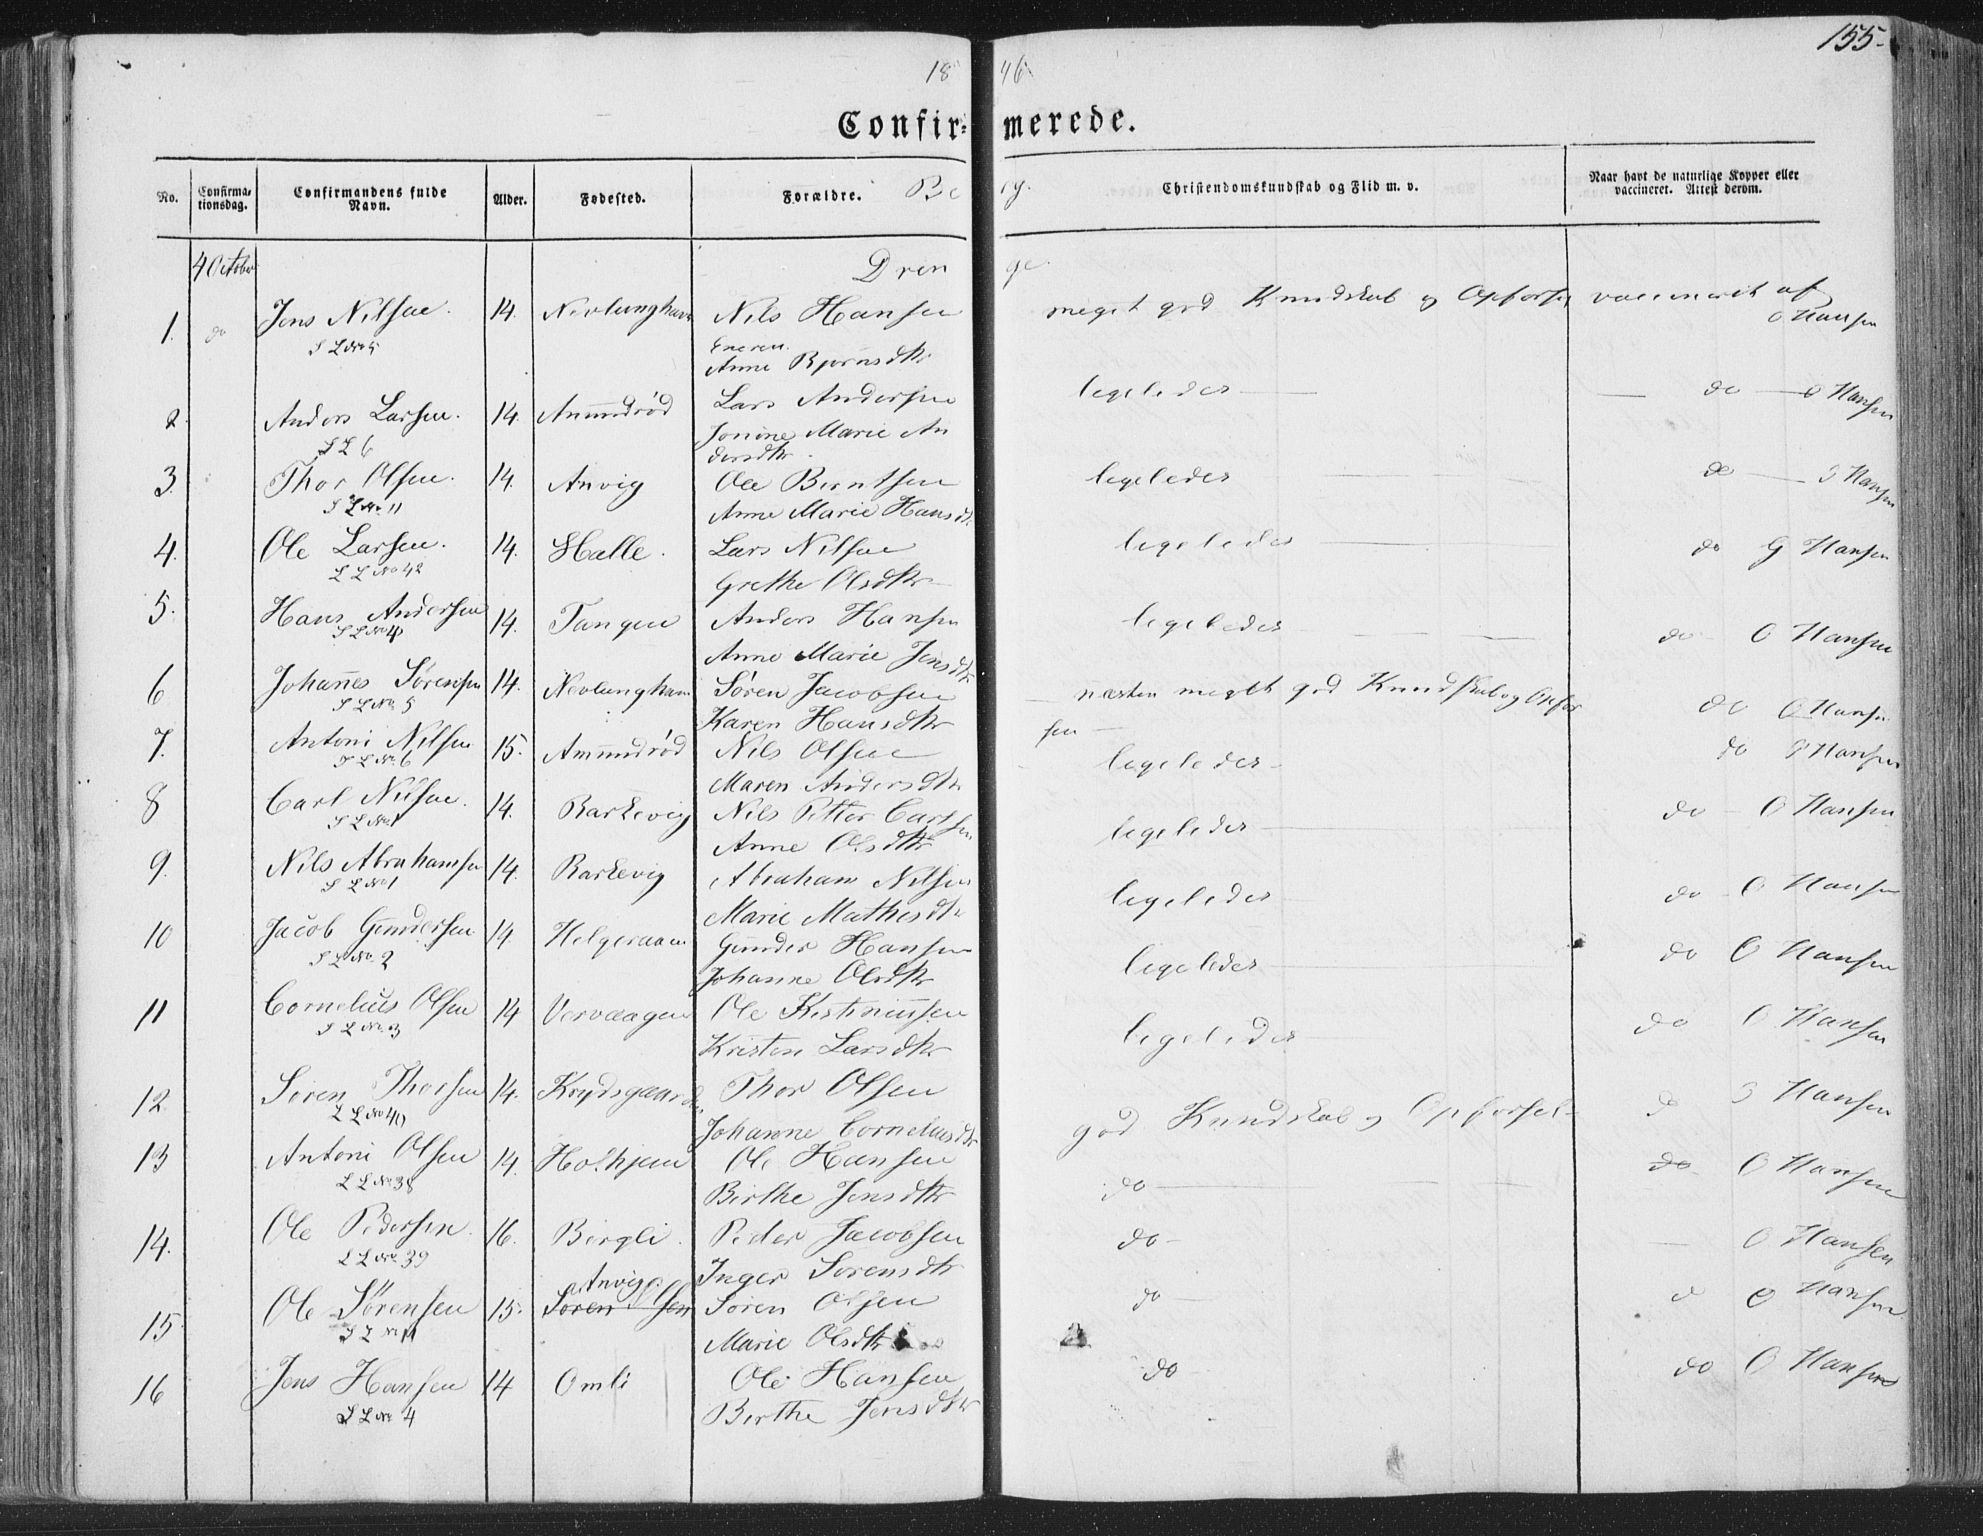 155.
18 46
Confir- merede.
No. Confirma- tionsdag. Confirmandens fulde Navn. Alder. Fødested. Forældre. Christendomskundskab og Flid m. v. Naar havt de naturlige Kopper eller vaccineret. Attest derom.
Be rg.
4 October Dren ge
1. do Jens Nilsen. 14. Nevlunghavn Nils Hansen meget god Kundskab og Opførsel vaccineret af
S L No 5 Anne Bjørnsdtr O Hansen
2. Anders Larsen. 14. Amundrød Lars Andersen ligeledes do O Hansen
S L 6 Jonine Marie An
dersdtr.
3. Thor Olsen. 14. Anvig Ole Berntsen ligeledes do Hansen
S L No. 11 Anne Marie Hansdtr
4. Ole Larsen. 14. Halle. Lars Nilsen ligeledes do G Hansen
L L No 42 Grethe Olsdtr
5. Hans Andersen 14. Tangen Anders Hansen ligeledes do O Hansen
S L No 4 Anne Marie Jensdtr
6 Johannes Sørensen 14. Nevlungham Søren Jacobsen næsten meget god Kundskab og Opfør do O Hansen
S L No. 5 Karen Hansdtr sen
7. Antoni Nilsen 15. Amundrød Nils Olsen ligeledes do Hansen
S L No. 6 Maren Andersdtr
8 Carl Nilsen. 14. Barkevig Nils Petter Carlsen ligeledes do O Hansen
S L No 1 Anne Olsdtr
9. Nils Abrahamsen 14. Barkevig Abraham Nilsen ligeledes do O Hansen
S L No 1 Marie Mathisdtr
10 Jacob Gundersen 14 Helgeraaen Gunder Hansen ligeledes do O Hansen
S L No. 2 Johanne Olsdtr
11 Cornelius Olsen 14 Vervaagen Ole Kistiniusen ligeledes do O Hansen
S L No. 3 Kristen Larsdtr
12 Sören Thorsen 14. Krydsgaarden Thor Olsen god Kundskab og Opførsel do Hansen
L L No 40 Johanne Corneliusdtr
13 Antoni Olsen 14. Holhjem Ole Hansen do do O Hansen
L L No 38 Birthe Jensdtr
14. Ole Pedersen. 16. Bergli. Peder Jacobsen do O Hansen
L L No. 39 Inger Sorensdtr
Anvig
15 Ole Sørensen 15. Søren Olsen Søren Olsen do d O Hansen
S L No 11 Marie Olsdtr
16 Jens Hansen 14 Omli Ole Hansen do do O Hansen
S L No 4 Birthe Jensdtr